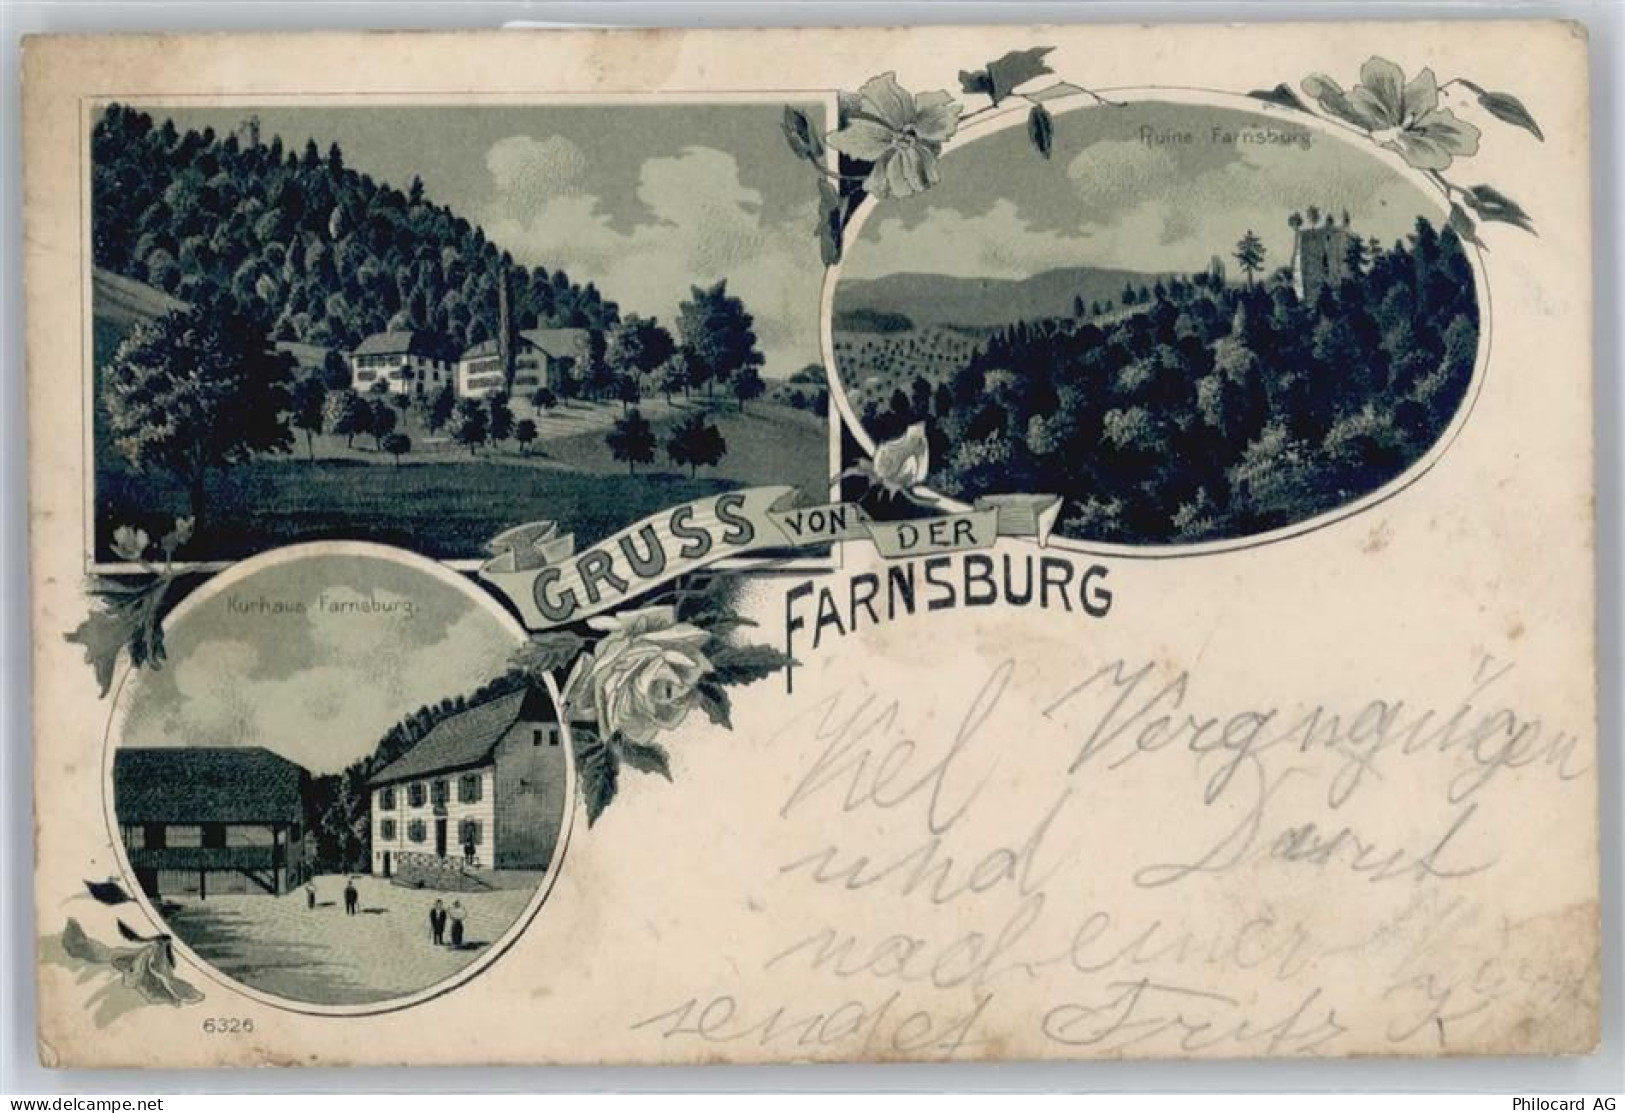 Ruine Farnsburg.
GRUSS VON DER
FARNSBURG
Kurhaus Farnsburg.
Viel Vergngügen
und Durst
nach einer
sendet Fritz K
6326
www.delcampe.net
Philocard AG